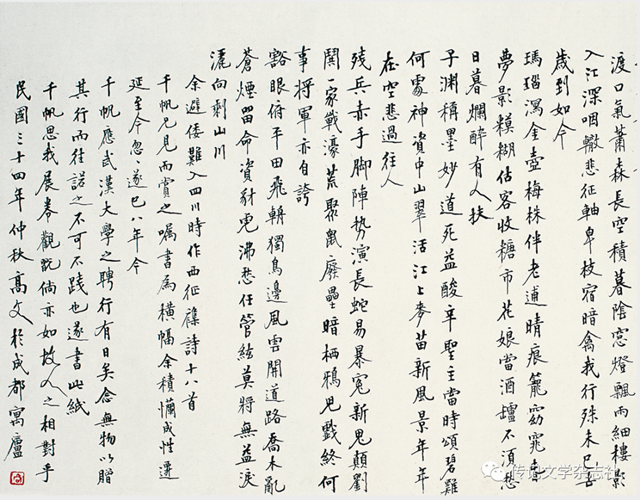 渡口氣蕭森長空積暮陰窓燈飄雨細樓影
入江深咽轍悲征軸卑枝宿暗禽我行殊未已苦
歲到如今
瑪瑙瀉金壺梅株伴老逋晴痕籠窈窕香
夢影模糊估客收糖市花娘當酒壚不須愁
日暮爛醉有人扶
子淵稱墨妙道死益酸辛聖主當時頌碧雞
何處神資中山翠活江上麥苗新風景年年
在空悲過往人
殘兵赤手脚陣勢演長蛇易暴冤新鬼顛劉
鬪一家戰濠荒聚鼠廢壘暗栖鴉兒戲終何
事將軍亦自誇
豁眼俯平田飛輈獨鳥邊風雲開道路喬木亂
蒼煙留命資豺虎沸愁任管絃莫將無益淚
灑向剩山川
余避倭難入四川時作西征雜詩十八首
千帆兄見而賞之囑書為橫幅余積懶成性遷
延至今忽遂已八年今
千帆應武漢大學之聘行有日矣念無物以贈
其行而往諾之不可不踐也遂書此紙
千帆思我展卷觀翫倘亦如故人之相對乎
民國三十四年仲秋高文於成都寓廬
传记文学杂志社